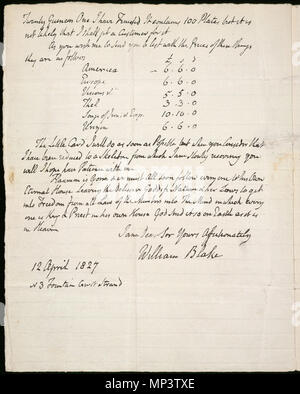 Twenty Guineas One I have Finished It contains 100 Plates but it is
not likely that I shall get a Customer for it
As you wish me to send you a list with the Prices of these things
they are as follows
£ s d
America 6.6.0
Europe 6.6.0
Visions &c 5.5.0
Thel 3.3.0
Songs of Inn. & Exp. 10.10.0
Urizen 6.6.0
The Little Card I will do as soon as Possible but when you Consider that
I have been reduced to a Skeleton from which I am slowly recovering you
will I hope have Patience with me
Flaxman is Gone & we must All soon follow every one to his Own
Eternal House Leaving the Delusive Goddess Nature & her Laws to get
into Freedom from all Law of the Members into The Mind in which every
one is King & Priest in his own House God Send it so on Earth as it is
in Heaven
I am Dear Sir Yours Affectionately
William Blake
12 April 1827
N 3 Fountain Court Strand
alamy
Image ID: MP3TXE
www.alamy.com